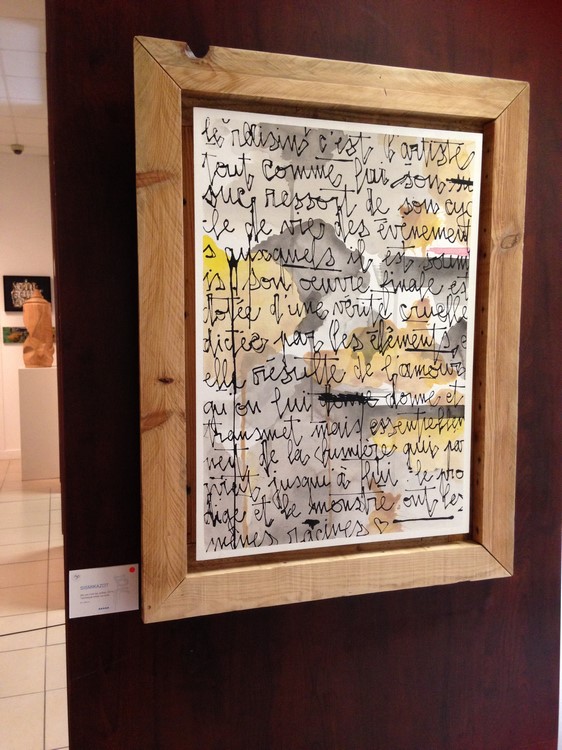 le raisin c'est l'artiste
tout comme lui son
suc ressort de son cyc
le de vie, des évènement
s auxquels il est soum
is, son oeuvre finale est
dotée d'une vérité cruelle
dictée par les éléments, e
elle résulte de l'amour
qu'on lui donne et
transmet mais essentiellem
ent de la lumière qui par
vient jusqu'à lui. le pro
dige et le monstre ont les
mêmes racines